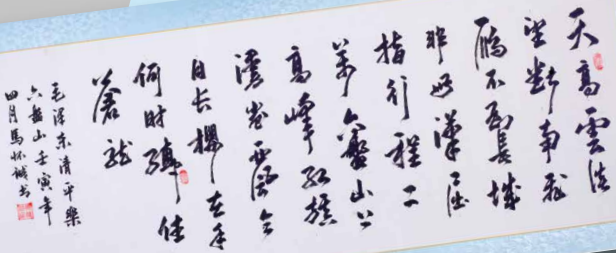 天高雲淡
望斷南飛
雁不到長城
非好漢屈
指行程二
萬六盤山上
高峰紅旗
漫卷西風今
日長纓在手
何時縛住
蒼龍
毛澤東清平樂
六盤山壬寅年
四月馬怀誠书